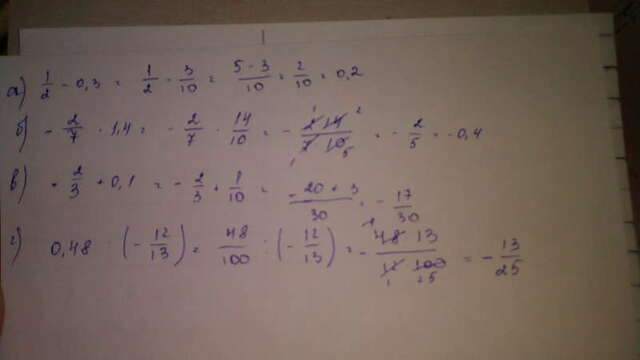 а) 1/2 - 0,3 = 1/2 - 3/10 = 5-3/10 = 2/10 = 0,2
б) - 2/7 · 1,4 = - 2/7 · 14/10 = - 2 14/7 10 = - 2/5 = -0,4
в) - 2/3 + 0,1 = - 2/3 + 1/10 = -20+3/30 = - 17/30
г) 0,48 : (- 12/13) = 48/100 : (- 12/13) = - 48 13/12 100 = - 13/25